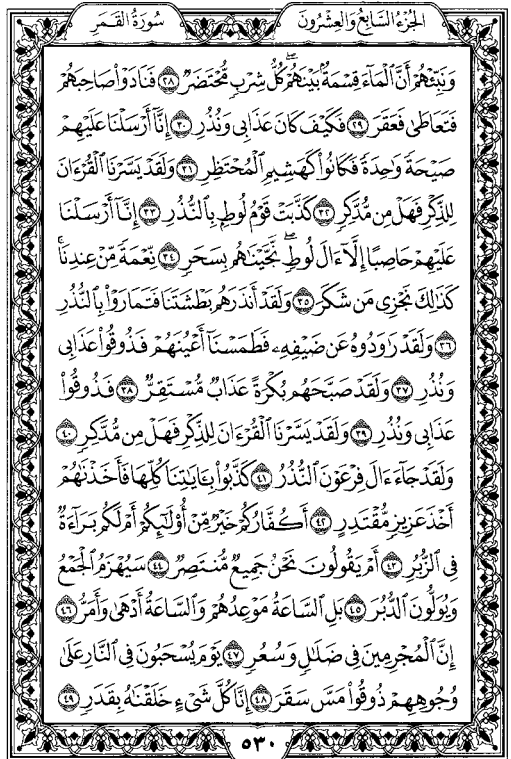 الجزء السابع والعشرون
سورة القمر
وَنَبِّئْهُمْ أَنَّ ٱلْمَآءَ قِسْمَةٌۢ بَيْنَهُمْ ۖ كُلُّ شِرْبٍ مُّحْتَضَرٌ ۝٢٨ فَنَادَوْا۟ صَاحِبَهُمْ
فَتَعَاطَىٰ فَعَقَرَ ۝٢٩ فَكَيْفَ كَانَ عَذَابِى وَنُذُرِ ۝٣٠ إِنَّآ أَرْسَلْنَا عَلَيْهِمْ
صَيْحَةً وَٰحِدَةً فَكَانُوا۟ كَهَشِيمِ ٱلْمُحْتَظِرِ ۝٣١ وَلَقَدْ يَسَّرْنَا ٱلْقُرْءَانَ
لِلذِّكْرِ فَهَلْ مِن مُّدَّكِرٍ ۝٣٢ كَذَّبَتْ قَوْمُ لُوطٍۭ بِٱلنُّذُرِ ۝٣٣ إِنَّآ أَرْسَلْنَا
عَلَيْهِمْ حَاصِبًا إِلَّآ ءَالَ لُوطٍ ۖ نَّجَّيْنَٰهُم بِسَحَرٍ ۝٣٤ نِّعْمَةً مِّنْ عِندِنَا ۚ
كَذَٰلِكَ نَجْزِى مَن شَكَرَ ۝٣٥ وَلَقَدْ أَنذَرَهُم بَطْشَتَنَا فَتَمَارَوْا۟ بِٱلنُّذُرِ
۝٣٦ وَلَقَدْ رَٰوَدُوهُ عَن ضَيْفِهِۦ فَطَمَسْنَآ أَعْيُنَهُمْ فَذُوقُوا۟ عَذَابِى
وَنُذُرِ ۝٣٧ وَلَقَدْ صَبَّحَهُم بُكْرَةً عَذَابٌ مُّسْتَقِرٌّ ۝٣٨ فَذُوقُوا۟
عَذَابِى وَنُذُرِ ۝٣٩ وَلَقَدْ يَسَّرْنَا ٱلْقُرْءَانَ لِلذِّكْرِ فَهَلْ مِن مُّدَّكِرٍ ۝٤٠
وَلَقَدْ جَآءَ ءَالَ فِرْعَوْنَ ٱلنُّذُرُ ۝٤١ كَذَّبُوا۟ بِـَٔايَٰتِنَا كُلِّهَا فَأَخَذْنَٰهُمْ
أَخْذَ عَزِيزٍ مُّقْتَدِرٍ ۝٤٢ أَكُفَّارُكُمْ خَيْرٌ مِّنْ أُو۟لَٰٓئِكُمْ أَمْ لَكُم بَرَآءَةٌ
فِى ٱلزُّبُرِ ۝٤٣ أَمْ يَقُولُونَ نَحْنُ جَمِيعٌ مُّنتَصِرٌ ۝٤٤ سَيُهْزَمُ ٱلْجَمْعُ
وَيُوَلُّونَ ٱلدُّبُرَ ۝٤٥ بَلِ ٱلسَّاعَةُ مَوْعِدُهُمْ وَٱلسَّاعَةُ أَدْهَىٰ وَأَمَرُّ ۝٤٦
إِنَّ ٱلْمُجْرِمِينَ فِى ضَلَٰلٍ وَسُعُرٍ ۝٤٧ يَوْمَ يُسْحَبُونَ فِى ٱلنَّارِ عَلَىٰ
وُجُوهِهِمْ ذُوقُوا۟ مَسَّ سَقَرَ ۝٤٨ إِنَّا كُلَّ شَىْءٍ خَلَقْنَٰهُ بِقَدَرٍ ۝٤٩
٥٣٠